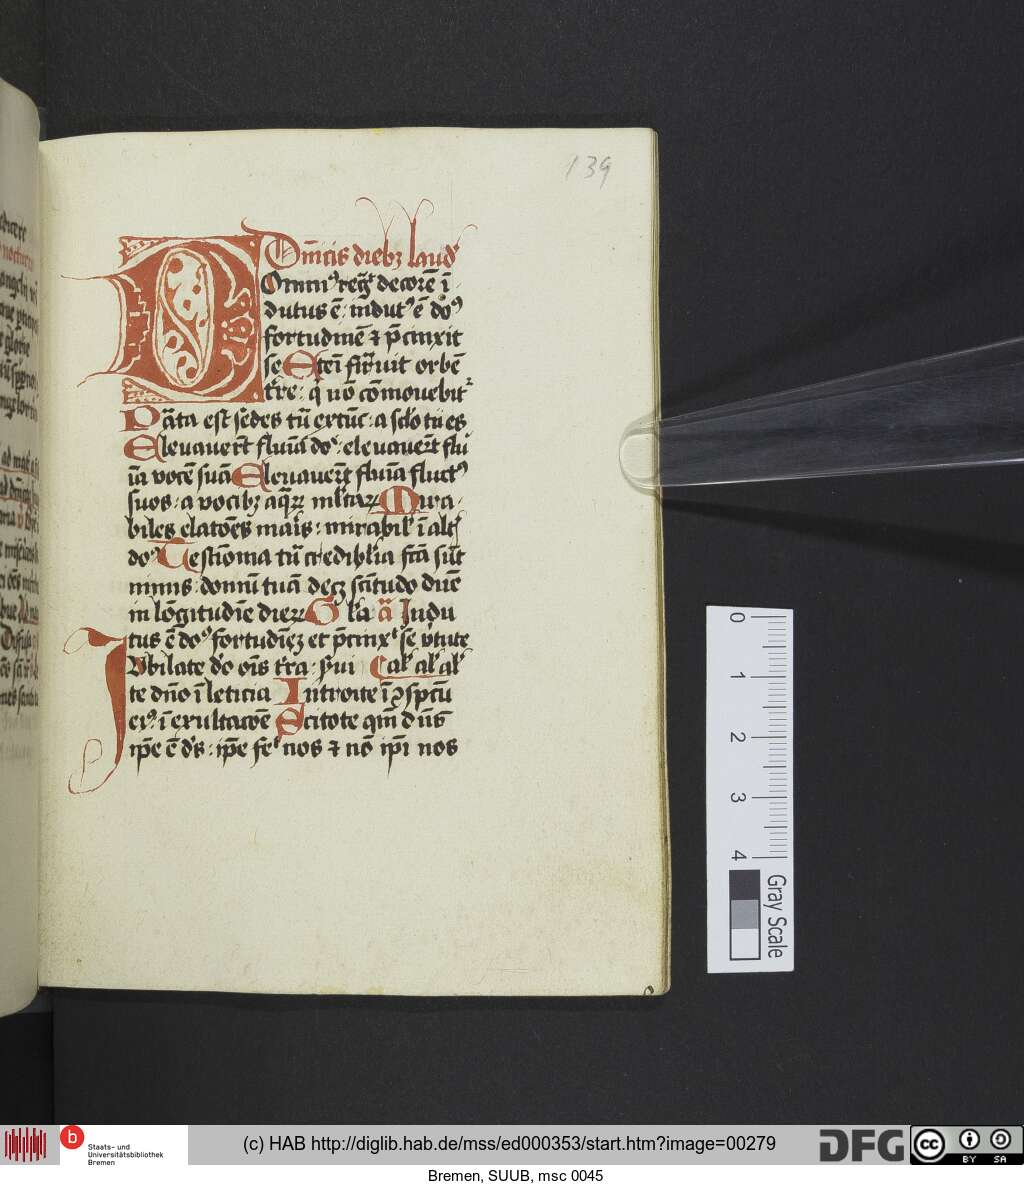 139
Dm̄icis diebꝫ laud'
Domin' reg̃t decorē ī
dutus ē : indut' ē do'
fortudinē ⁊ p̄cinxit
se Eteī firꝰuit orbē
t're : q nō cōmouebit'
Pāta est sedes tū extūc : a sclō tu es
Eleuauer̄t flumīa do' : eleuauer̄t flu
īa vocē suā Eleuauer̄t flumīa fluct'
suos : a vocibꝫ aqꝝ ml'taꝝ Mira
biles elatōes mar̄is : mirabil' ī alt'
do' Testīonia tū credibl'ia fcā sūt
nimis : domū tuā decꝫ scītudo dn̄e
in lōgitudīe dierꝝ Gl'a ā Indu
tus ē do' fortudīeꝫ et p̄cinx' se v'tute
Jvbilate d'o oīs t'ra : s'ui Cal' al' al'
te dn̄o ī leticia Introite ī ꝯspc̄tu
ei' : ī exultacōe Scitote qm̄ dn̄s
ip̄e ē d's : ip̄e fe' nos ⁊ nō ip̄i nos
0
1
2
3
4
Gray Scale
b
Staats- und
Universitätsbibliothek
Bremen
(c) HAB http://diglib.hab.de/mss/ed000353/start.htm?image=00279
DFG
cc
BY SA
Bremen, SUUB, msc 0045